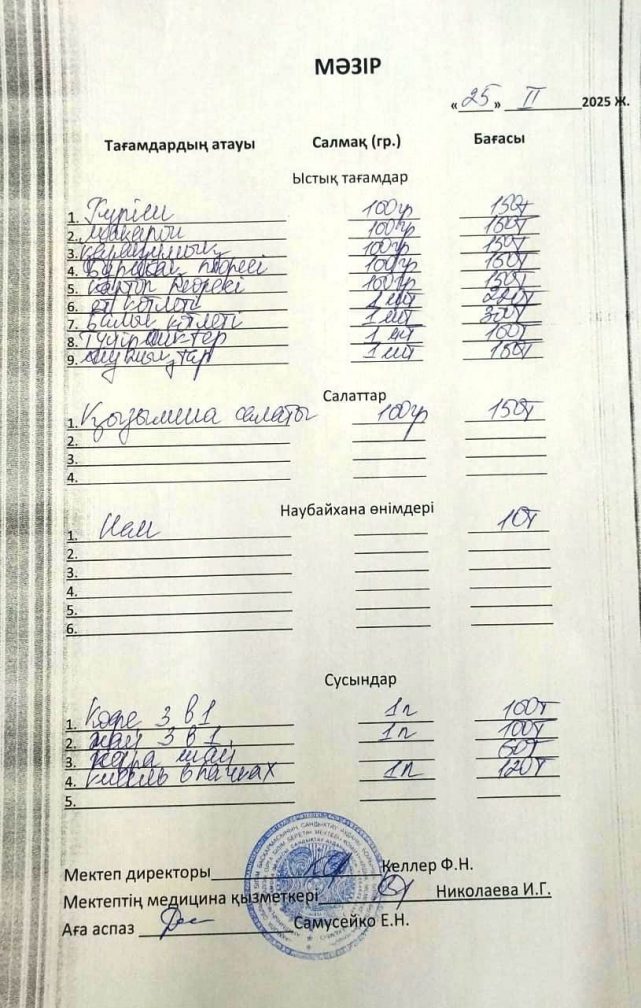 МӘЗІР
«25» II 2025 Ж.
Тағамдардың атауы Салмақ (гр.) Бағасы
Ыстық тағамдар
1. Күріш 100гр 150т
2. макарон 100гр
3. 100гр 150т
4. Бұршақ пюресі 100гр
5. картоп пюресі 100гр 150т
6. ет котлеті 1 шт
7. балық котлеті 1 шт 300т
8. 1 шт
9. 1 шт
Салаттар
1. Қызылша салаты 100гр 150т
2.
3.
4.
Наубайхана өнімдері
1. Нан 10т
2.
3.
4.
5.
6.
Сусындар
1. Кофе 3 в 1 1п 100т
2. шай 3 в 1 1п 100т
3. қара шай 60т
4. кисель в пачках 1п 120т
5.
Мектеп директоры Келлер Ф.Н.
Мектептің медицина қызметкері Николаева И.Г.
Аға аспаз Самусейко Е.Н.